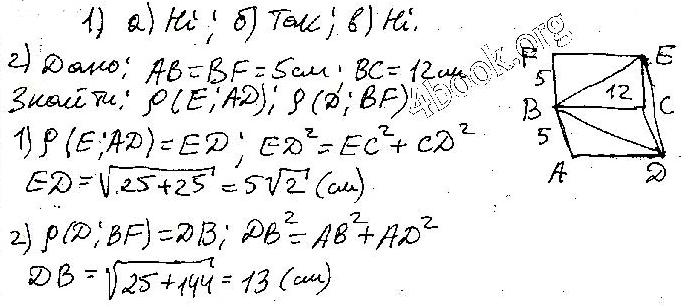 1) а) Ні; б) Так; в) Ні.
2) Дано: AB=BF=5см. BC=12см
Знайти: ρ(E;AD); ρ(D;BF)
1) ρ(E;AD)=ED; ED²=EC²+CD²
ED=√25+25=5√2 (см)
2) ρ(D;BF)=DB; DB²=AB²+AD²
DB=√25+144=13 (см)
F E
5
B 12 C
5
A D
4book.org